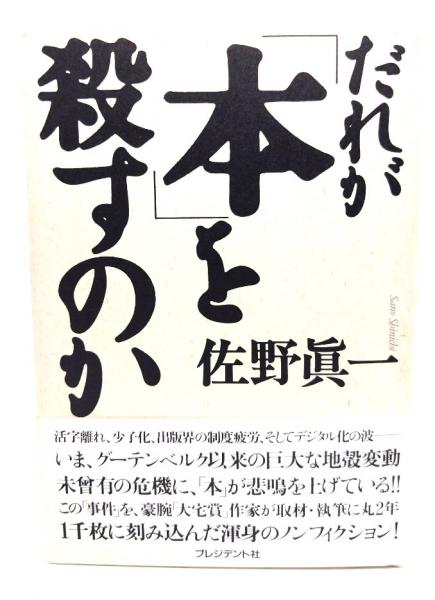 だれが
「本」を
殺すのか
Sano Shinichi
佐野眞一
活字離れ、少子化、出版界の制度疲労、そしてデジタル化の波――
いま、グーテンベルク以来の巨大な地殻変動
未曾有の危機に、「本」が悲鳴を上げている!!
この「事件」を、豪腕「大宅賞」作家が取材・執筆に丸2年
1千枚に刻み込んだ渾身のノンフィクション!
プレジデント社